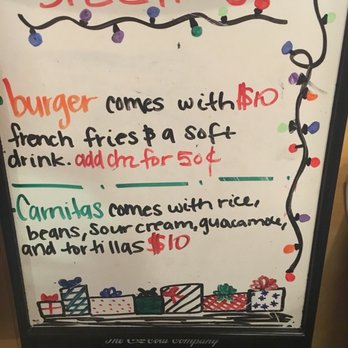 burger comes with $10
french fries & a soft
drink. add chz for 50¢
Carnitas comes with rice,
beans, sour cream, guacamole,
and tortillas $10